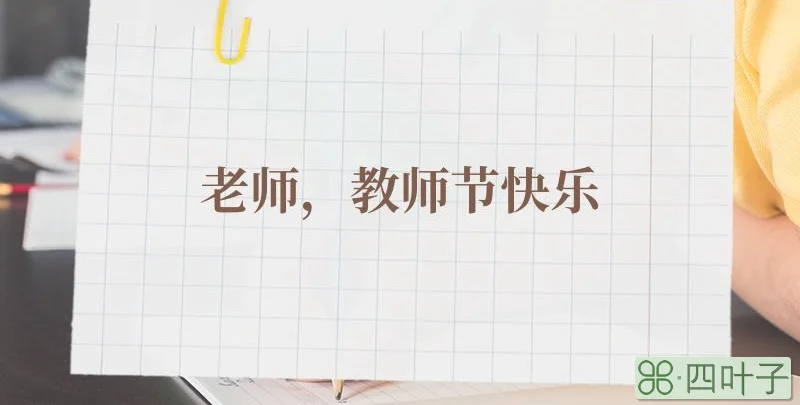 老师，教师节快乐
四叶子